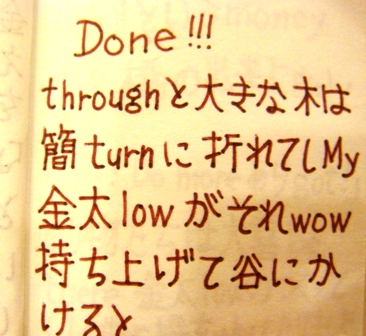 Done!!!
throughと大きな木は
簡turnに折れてしMy
金太lowがそれwow
持ち上げて谷にか
けると